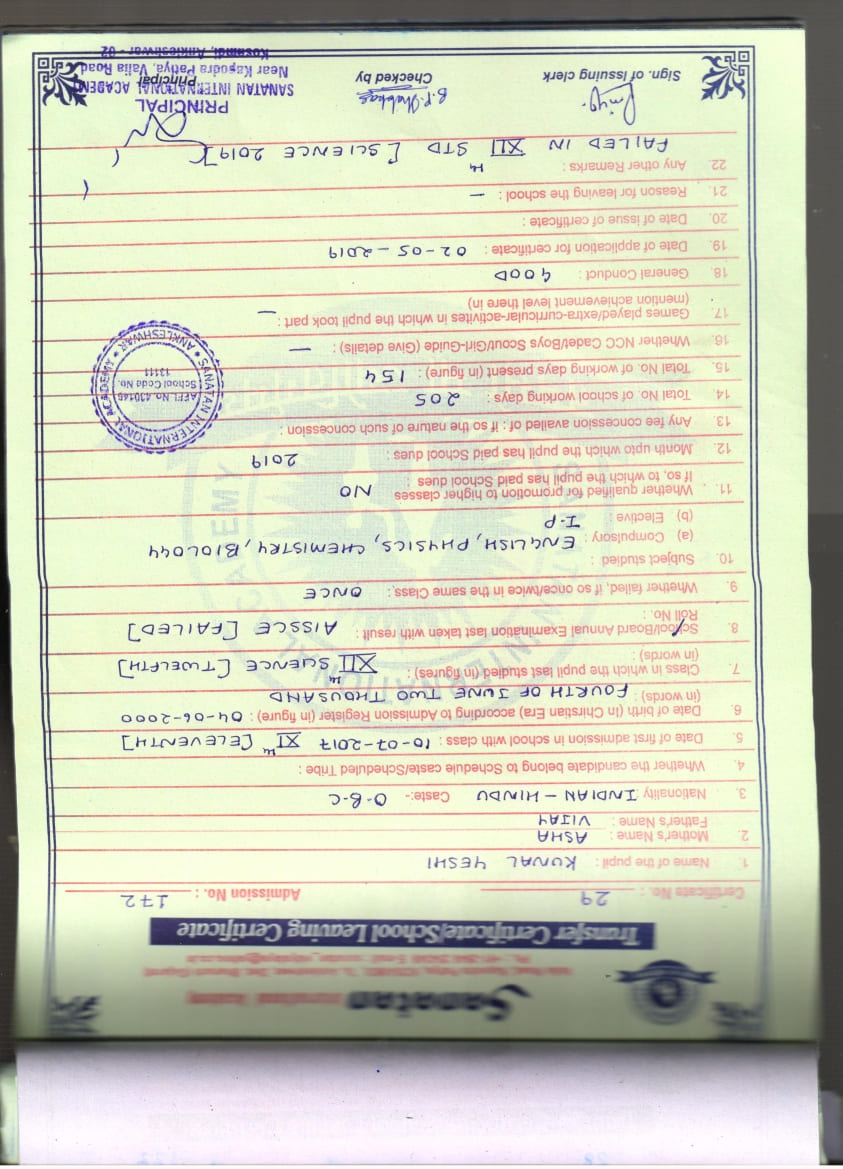 Sanatan International Academy
Transfer Certificate/School Leaving Certificate
Certificate No. : 29 Admission No. : 172
1. Name of the pupil : KUNAL YESHI
2. Mother's Name : ASHA
Father's Name : VIJAY
3. Nationality : INDIAN - HINDU Caste:- O-B-C
4. Whether the candidate belong to Schedule caste/Scheduled Tribe :
5. Date of first admission in school with class : 10-07-2017 XI th [ELEVENTH]
6. Date of birth (In Chirstian Era) according to Admission Register (in figure) : 04-06-2000
(in words) : FOURTH OF JUNE TWO THOUSAND
7. Class in which the pupil last studied (in figures) : XII th SCIENCE [TWELFTH]
(in words) :
8. School/Board Annual Examination last taken with result : AISSCE [FAILED]
Roll No. :
9. Whether failed, if so once/twice in the same Class, : ONCE
10. Subject studied :
(a) Compulsory : ENGLISH, PHYSICS, CHEMISTRY, BIOLOGY
(b) Elective : I-P
11. Whether qualified for promotion to higher classes NO
If so, to which the pupil has paid School dues :
12. Month upto which the pupil has paid School dues : 2019
13. Any fee concession availed of : if so the nature of such concession :
14. Total No. of school working days : 205
15. Total No. of working days present (in figure) : 154
16. Whether NCC Cadet/Boys Scout/Girl-Guide (Give details) : —
17. Games played/extra-curricular-activites in which the pupil took part : —
(mention achievement level there in)
18. General Conduct : GOOD
19. Date of application for certificate : 02-05-2019
20. Date of issue of certificate :
21. Reason for leaving the school : —
22. Any other Remarks :
FAILED IN XII th STD [SCIENCE 2019]
Sign. of Issuing clerk
Checked by
Principal
PRINCIPAL
SANATAN INTERNATIONAL ACADEMY
Near Kapodra Patiya, Valia Road
Kosamdi, Ankleshwar - 02
SANATAN INTERNATIONAL ACADEMY * ANKLESHWAR *
AFFI. No. 430145
School Code No.
13111
INTERNATIONAL ACADEMY